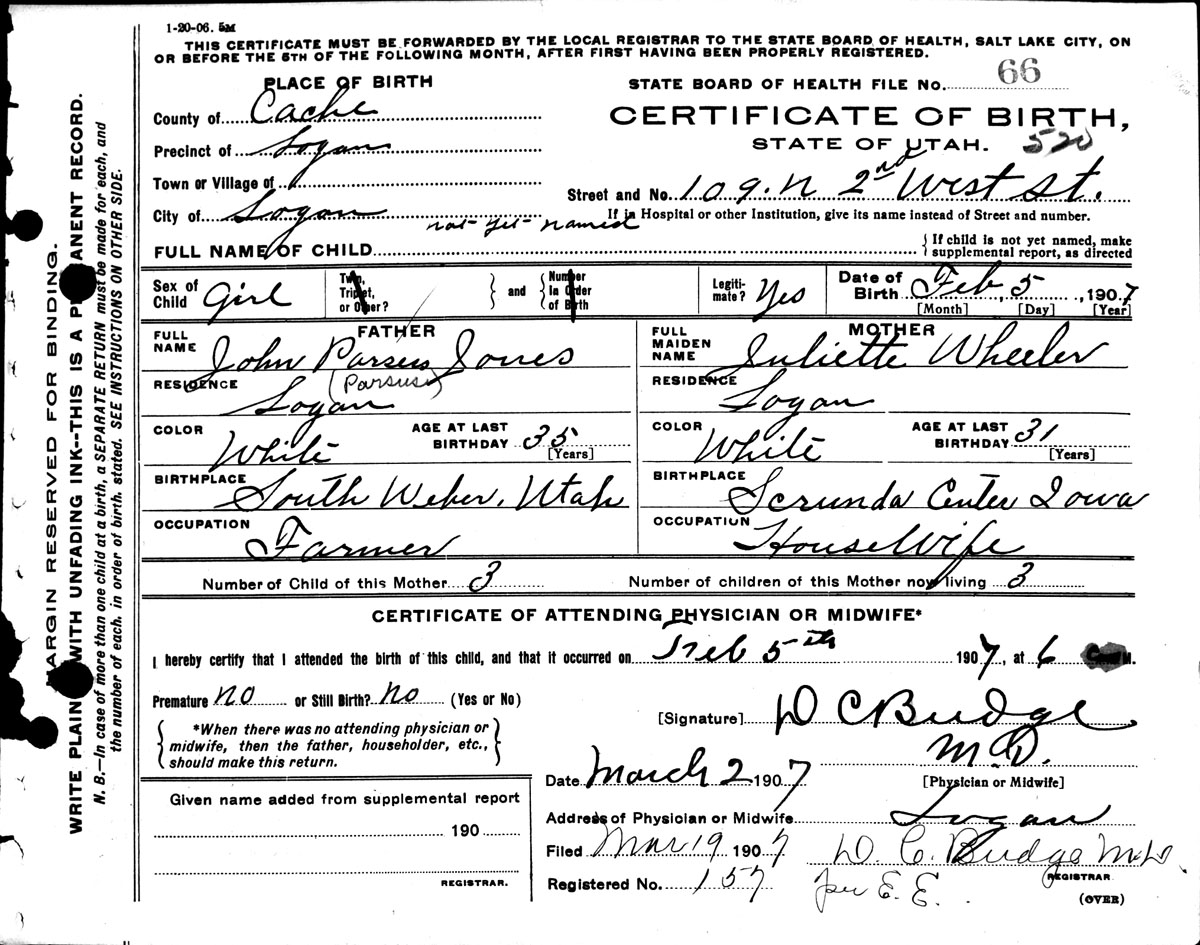 1-20-06. 5M
THIS CERTIFICATE MUST BE FORWARDED BY THE LOCAL REGISTRAR TO THE STATE BOARD OF HEALTH, SALT LAKE CITY, ON
OR BEFORE THE 5TH OF THE FOLLOWING MONTH, AFTER FIRST HAVING BEEN PROPERLY REGISTERED.
PLACE OF BIRTH
STATE BOARD OF HEALTH FILE No. 66
County of Cache
CERTIFICATE OF BIRTH,
Precinct of Logan
STATE OF UTAH. 520
Town or Village of
Street and No. 109. N 2nd West St.
City of Logan
If in Hospital or other Institution, give its name instead of Street and number.
FULL NAME OF CHILD not yet named
{ If child is not yet named, make
supplemental report, as directed
Sex of Child Girl
Twin, Triplet, or Other? } and { Number In Order of Birth
Legitimate? Yes
Date of Birth Feb 5, 1907
[Month] [Day] [Year]
FATHER
FULL NAME John Parsus Jones
(Parsus)
RESIDENCE Logan
COLOR White
AGE AT LAST BIRTHDAY 35
[Years]
BIRTHPLACE South Weber, Utah
OCCUPATION Farmer
MOTHER
FULL MAIDEN NAME Juliette Wheeler
RESIDENCE Logan
COLOR White
AGE AT LAST BIRTHDAY 31
[Years]
BIRTHPLACE Center Iowa
OCCUPATION HouseWife
Number of Child of this Mother 3 Number of children of this Mother now living 3
CERTIFICATE OF ATTENDING PHYSICIAN OR MIDWIFE*
I hereby certify that I attended the birth of this child, and that it occurred on Feb 5th 1907, at 6 M.
Premature no or Still Birth? no (Yes or No)
[Signature] D C Budge
M.D.
[Physician or Midwife]
{ *When there was no attending physician or
midwife, then the father, householder, etc.,
should make this return. }
Date March 2 1907
Given name added from supplemental report
190
REGISTRAR.
Address of Physician or Midwife Logan
Filed Mar 19 1907 D. C. Budge M.D
REGISTRAR
Registered No. 157 per E. E.
(OVER)
MARGIN RESERVED FOR BINDING.
WRITE PLAIN WITH UNFADING INK--THIS IS A PERMANENT RECORD.
N. B.—In case of more than one child at a birth, a SEPARATE RETURN must be made for each, and
the number of each, in order of birth, stated. SEE INSTRUCTIONS ON OTHER SIDE.